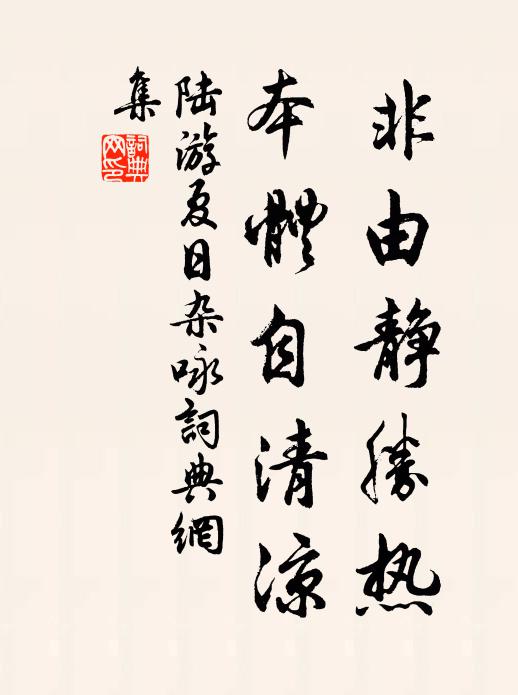 非由静勝热
本體自清涼
陆游夏日杂咏詞典網
集
詞典網印